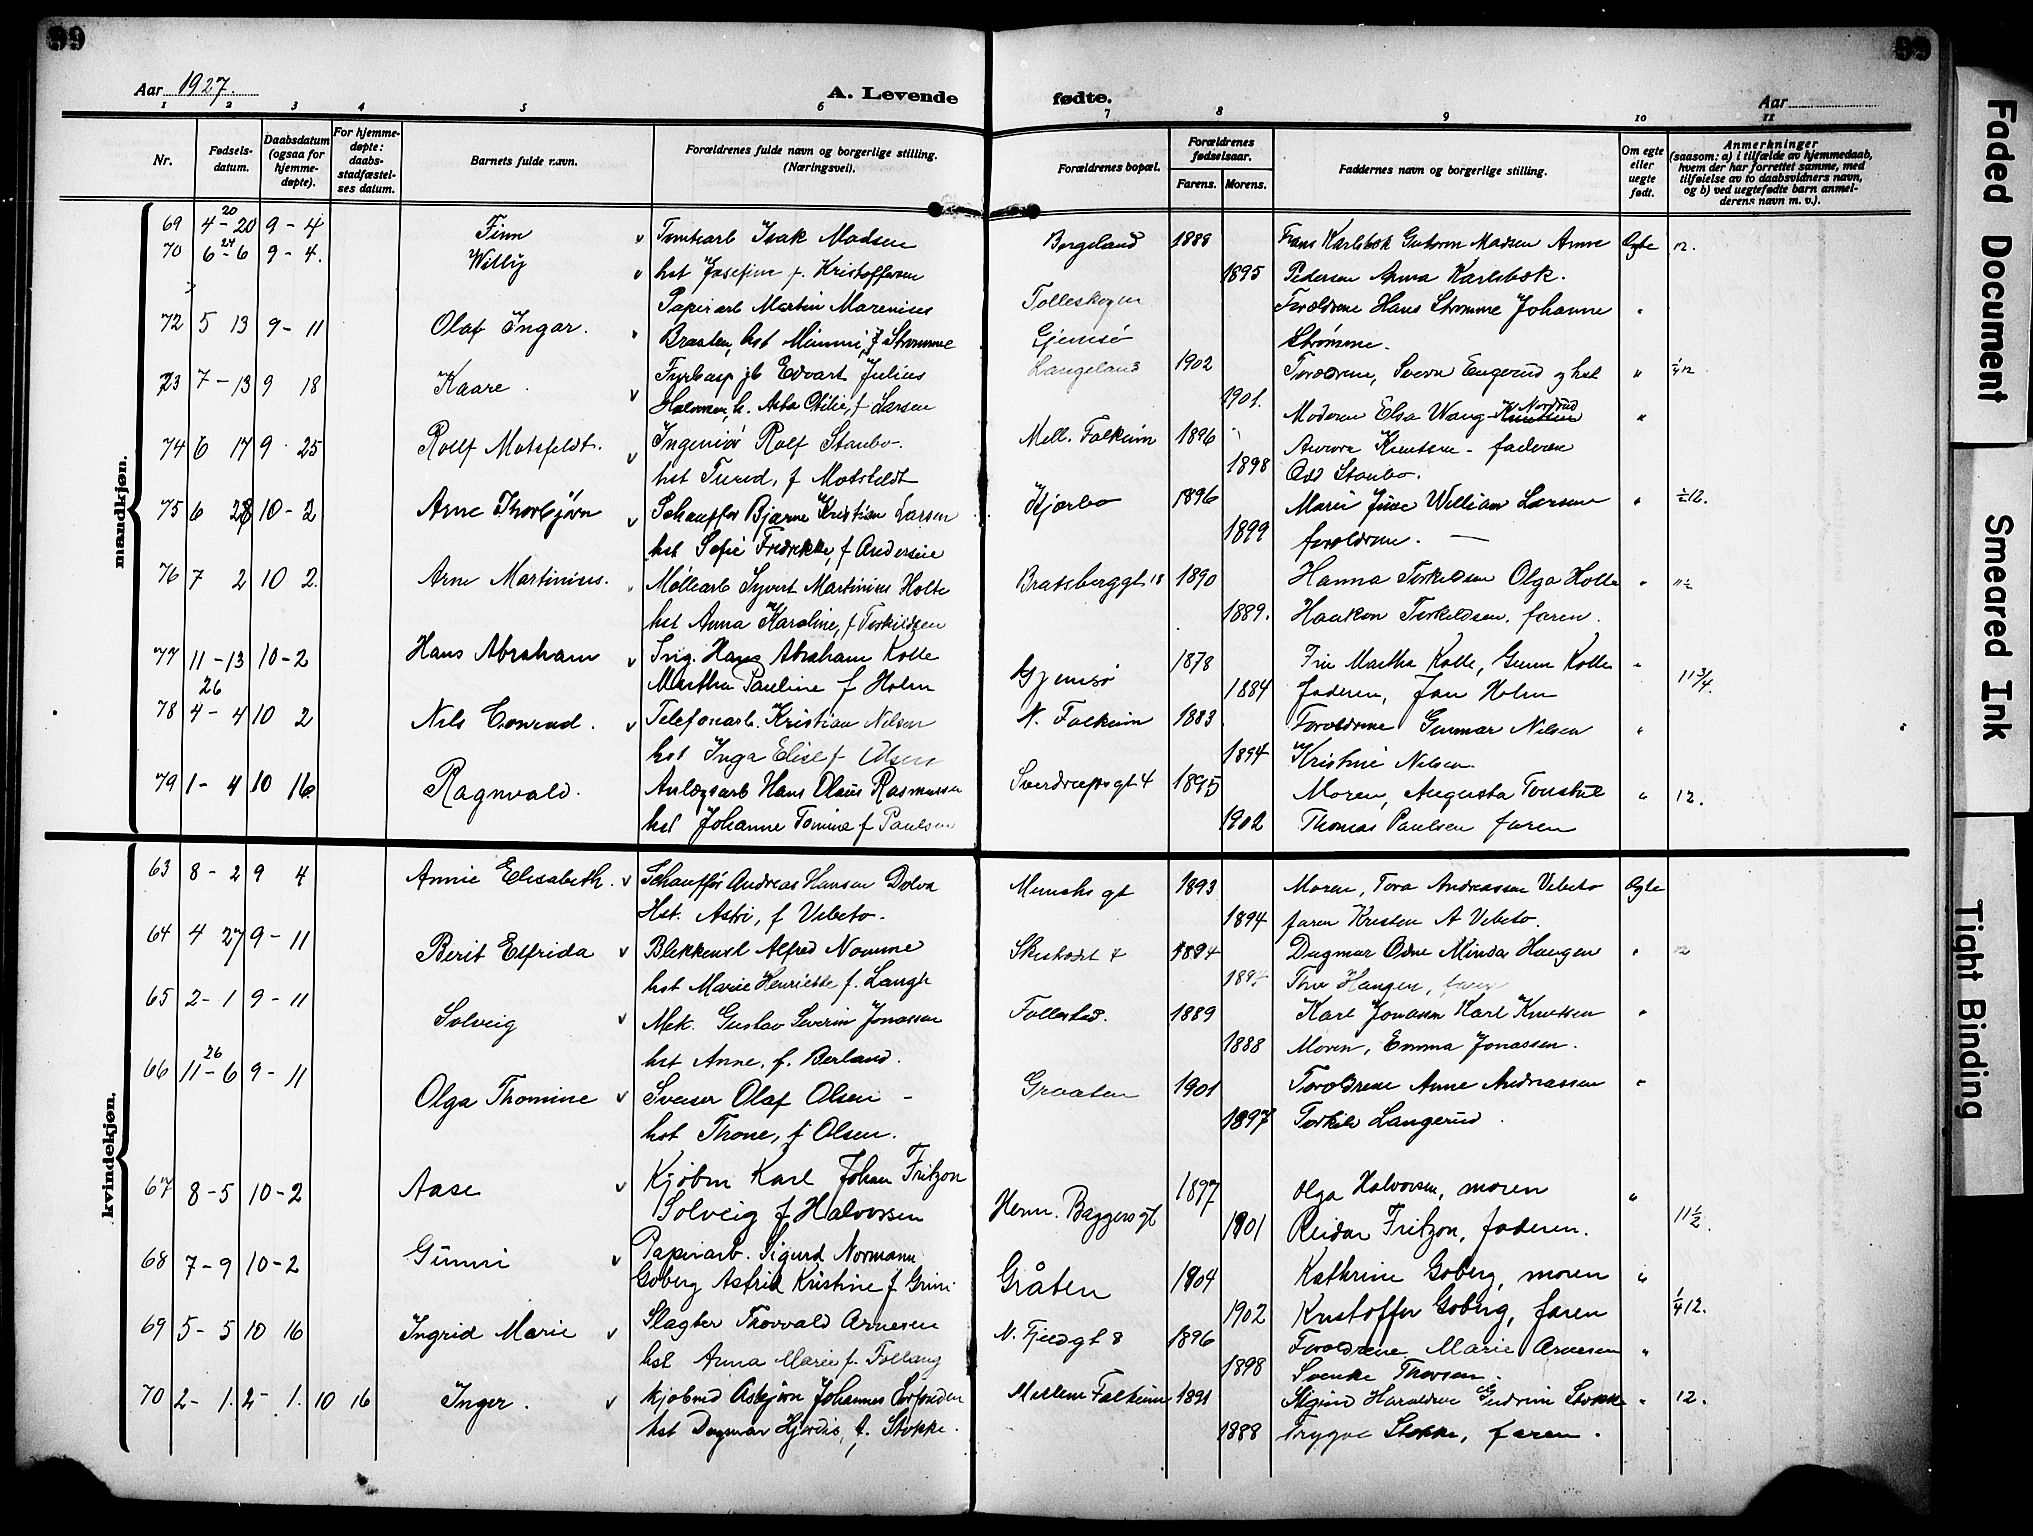 99
99
Aar 1927.
A. Levende fødte.
Aar
1 2 3 4 5 6 7 8 9 10 11
Nr.
Fødselsdatum.
Daabsdatum (ogsaa for hjemmedøpte).
For hjemmedøpte: daabsstadfæstelses datum.
Barnets fulde navn.
Forældrenes fulde navn og borgerlige stilling. (Næringsvei).
Forældrenes bopæl.
Forældrenes fødselsaar.
Farens. Morens.
Faddernes navn og borgerlige stilling.
Om egte eller uegte født.
Anmerkninger (saasom: a) i tilfælde av hjemmedaab, hvem der har forrettet samme, med tilføielse av to daabsvidners navn, og b) ved uegtefødte barn anmelderens navn m. v.).
mandkjøn.
69 4-20 20 9-4 Finn Tomtearb Isak Madsen Borgeland 1888 Frans Karlsbæk Gudrun Madsen Anne Egte 12.
70 6-6 24 9-4. Willy hst Josefine f. Kristoffersen 1895 Pedersen Anna Karlsbæk.
72 5 13 9-11 Olaf Ingar. Papirarb Martin Marenius Tolleskogen Forældrene Hans Strømme Johanne "
Braaten, hst Mimmi, f Strømme Gjemsø Strømme.
73 7-13 9 18 Kaare. Edvart Julius Langeland 1902 Forældrene, Sverre Engerud og hst " ¼12
h. Asta Otilie, f Larsen 1901.
74 6 17 9 25 Rolf Motzfeldt. Ingeniør Rolf Staubo. Mell. Falkum 1896 Moderen Elsa Wang "
hst Turid, f Motzfeldt 1898 Aurora Knutsen - faderen
Odd Staubo.
75 6 28 10-2 Arne Thorbjørn Schauffør Bjarne Kristian Larsen Kjørbo 1896 William Larsen " ½12.
hst Sofie Fredrikke, f Andersen 1899 forældrene.
76 7 2 10 2. Arne Martinius. Møllearb Syvert Martinius Holte Bratsberggt 18 1890 Hanna Torkildsen Olga Holte " 11½
hst Anna Karoline, f Torkildsen 1889. Haakon Torkildsen, faren.
77 11-13 26 10-2 Hans Abraham Ing. Hans Abraham Kolle Gjemsø 1878 Fru Martha Kolle, Gunn Kolle " 11¾.
Martha Pauline f Holm 1884 Faderen, Jan Holm
78 4-4 10 2 Nils Conrad. Telefonarb. Kristian Nilsen N. Falkum 1883 Forældrene Gunnar Nilsen "
hst Inga Elise f Olsen 1894 Kristine Nilsen
79 1-4 10 16 Ragnvald. Anlægsarb Hans Olaus Rasmussen Sverdrupsgt 4 1895 Moren, Augusta " 12.
hst Johanne Tomine f Paulsen 1902 Thomas Paulsen faren
kvindekjøn.
63 8-2 9 4 Annie Elisabeth. Schauffør Andreas Hansen Dolva Munchs gt 1893 Moren, Tora Andreassen Vebeto Egte
Hst. Astri, f Vebeto. 1894 faren Kristen A Vebeto.
64 4 27 9-11 Berit Elfrida Alfred Nomme 1894 Dagmar Odne Minda Haugen "
hst Marie Henriette f. Haugen, faren
65 2-1 9-11 Solveig Mek. Gustav Severin Jonassen Follestad. 1889 Karl Jonassen Karl Knutsen "
hst Anne, f. Berland. 1888 Moren, Emma Jonassen.
66 11-6 26 9-11 Olga Thomine Sveiser Olaf Olsen Graaten 1901 Forældrene Anne Andreassen "
hst Thone, f Olsen. 1897 Torkild Langerud.
67 8-5 10-2 Aase Kjøbm Karl Johan Fritzon Herm. Baggers gt 1897 Olga Halvorsen, moren " 11½.
Solveig f Halvorsen 1901 Reidar Fritzon, faderen.
68 7-9 10-2 Gunni Papirarb. Sigurd Normann Gråten 1904 Kathrine Goberg, moren " ¼12.
Goberg Astrid Kristine f Grini 1902 Kristoffer Goberg, faren
69 5-5 10 16 Ingrid Marie Slagter Thorvald Arnesen N. Fjeldgt 8 1896 Forældrene Marie Arnesen "
hst Anna Marie f. 1898 Svenke Thorsen.
70 2-1. 2-1. 10 16 Inger. Kjøbmd Asbjørn Johannes Mellem Falkum 1891 Sigrid Haraldsen Gudrun Stokke " 12.
hst Dagmar Hjørdis, f. Stokke. 1888 Trygve Stokke, faren.
Faded Document
Smeared Ink
Tight Binding